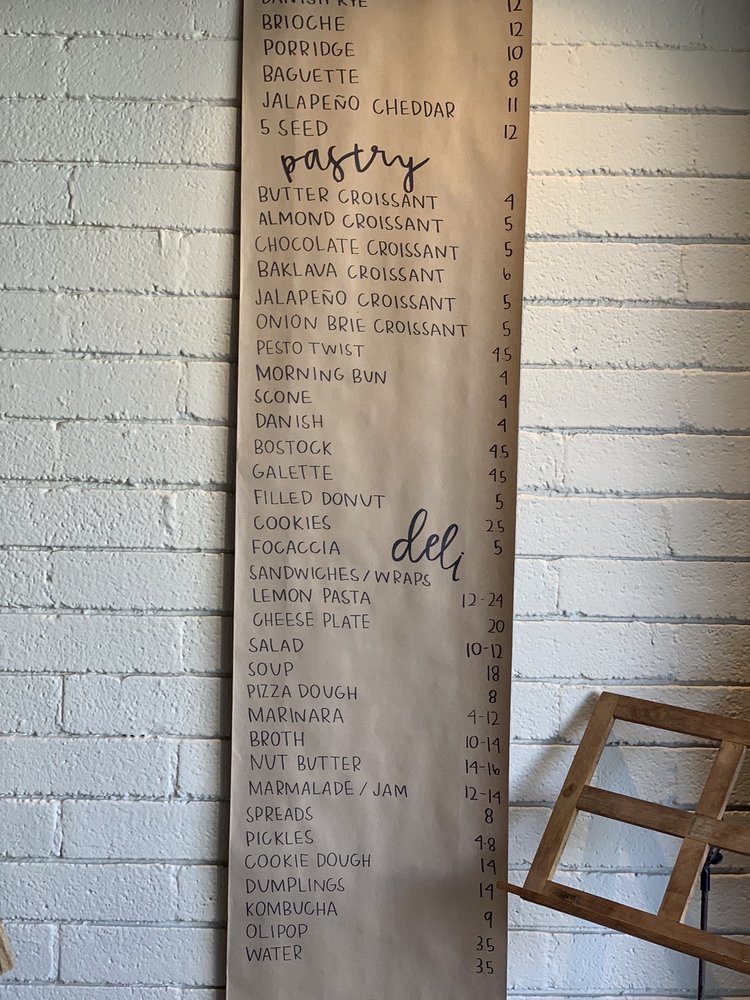 DANISH RYE 12
BRIOCHE 12
PORRIDGE 10
BAGUETTE 8
JALAPEÑO CHEDDAR 11
5 SEED 12
pastry
BUTTER CROISSANT 4
ALMOND CROISSANT 5
CHOCOLATE CROISSANT 5
BAKLAVA CROISSANT 6
JALAPEÑO CROISSANT 5
ONION BRIE CROISSANT 5
PESTO TWIST 4.5
MORNING BUN 4
SCONE 4
DANISH 4
BOSTOCK 4.5
GALETTE 4.5
FILLED DONUT 5
COOKIES 2.5
FOCACCIA 5
deli
SANDWICHES/WRAPS
LEMON PASTA 12-24
CHEESE PLATE 20
SALAD 10-12
SOUP 18
PIZZA DOUGH 8
MARINARA 4-12
BROTH 10-14
NUT BUTTER 14-16
MARMALADE/JAM 12-14
SPREADS 8
PICKLES 4.8
COOKIE DOUGH 14
DUMPLINGS 14
KOMBUCHA 9
OLIPOP 3.5
WATER 3.5